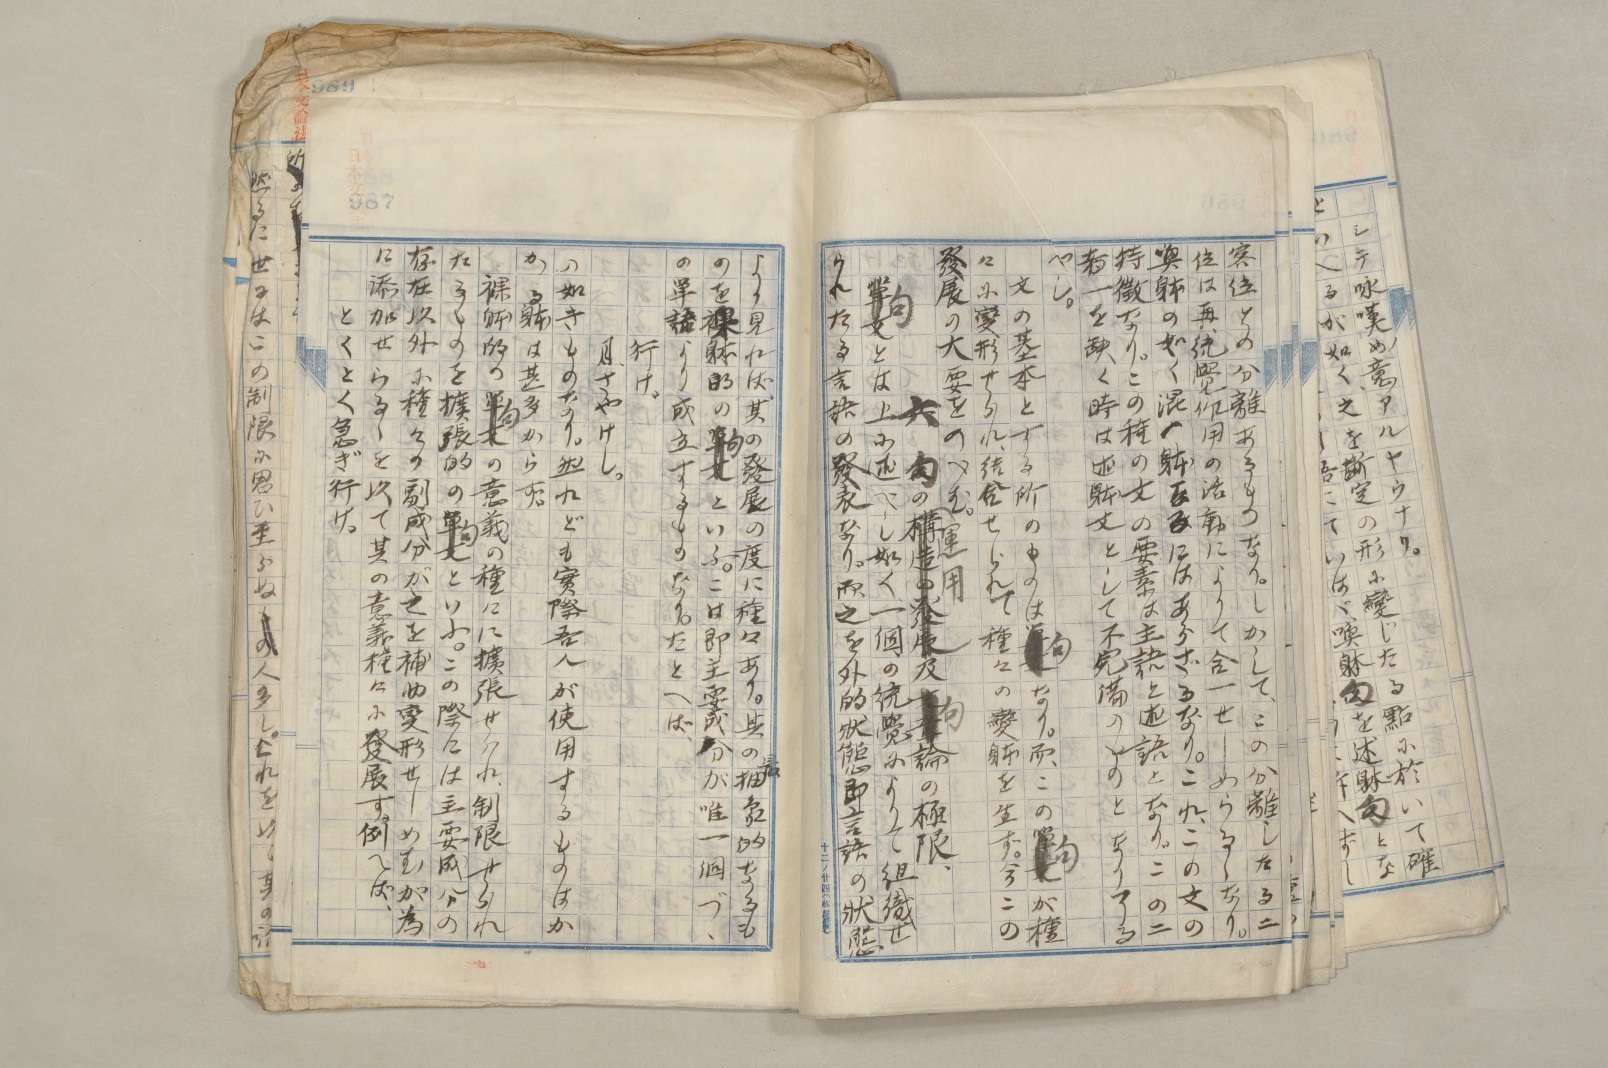 シテ咏嘆の意アルヤウナリ。
といへるが如く之を斷定の形に變じたる點に於いて確
賓位との分離あるものなり。しかして、この分離したる二
位は再、統覺作用の活動によりて合一せしめらるゝなり。
喚躰の如く混一躰にはあらざるなり。これ、この文の
特徴なり。この種の文の要素は主語と述語となり。この二
者一を缺く時は述躰文として不完備のものとなりアル
べし。
文の基本とする所のものは句なり。而、この句が種
々に變形せられ、結合せられて種々の變躰を生ず。今この
發展の大要をのべむ。
六 句の運用
構造の發展及句論の極限、
句とは上に述べし如く一個の統覺によりて組織せ
られたる言語の發表なり。而之を外的狀態即言語の狀態
より見れば其の發展の度に種々あり。其の最抽象的なるも
のを裸躰的の句といふ。こは即主要成分が唯一個づゝ
の單語より成立するものなり。たとへば、
行け。
月さやけし。
の如きものなり。然れども實際吾人が使用するものはか
かる躰は甚多からず。
裸躰的の句の意義の種々に擴張せられ、制限せられ
たるものを擴張的の句といふ。この際には主要成分の
存在以外に種々の副成分が之を補助變形せしめむが為
に添加せらるゝを以て其の意義種々に發展す。例へば、
とくとく急ぎ行け。
然るに世にはこの制限に思ひ至らぬ人多し。
日本文論法
987
989